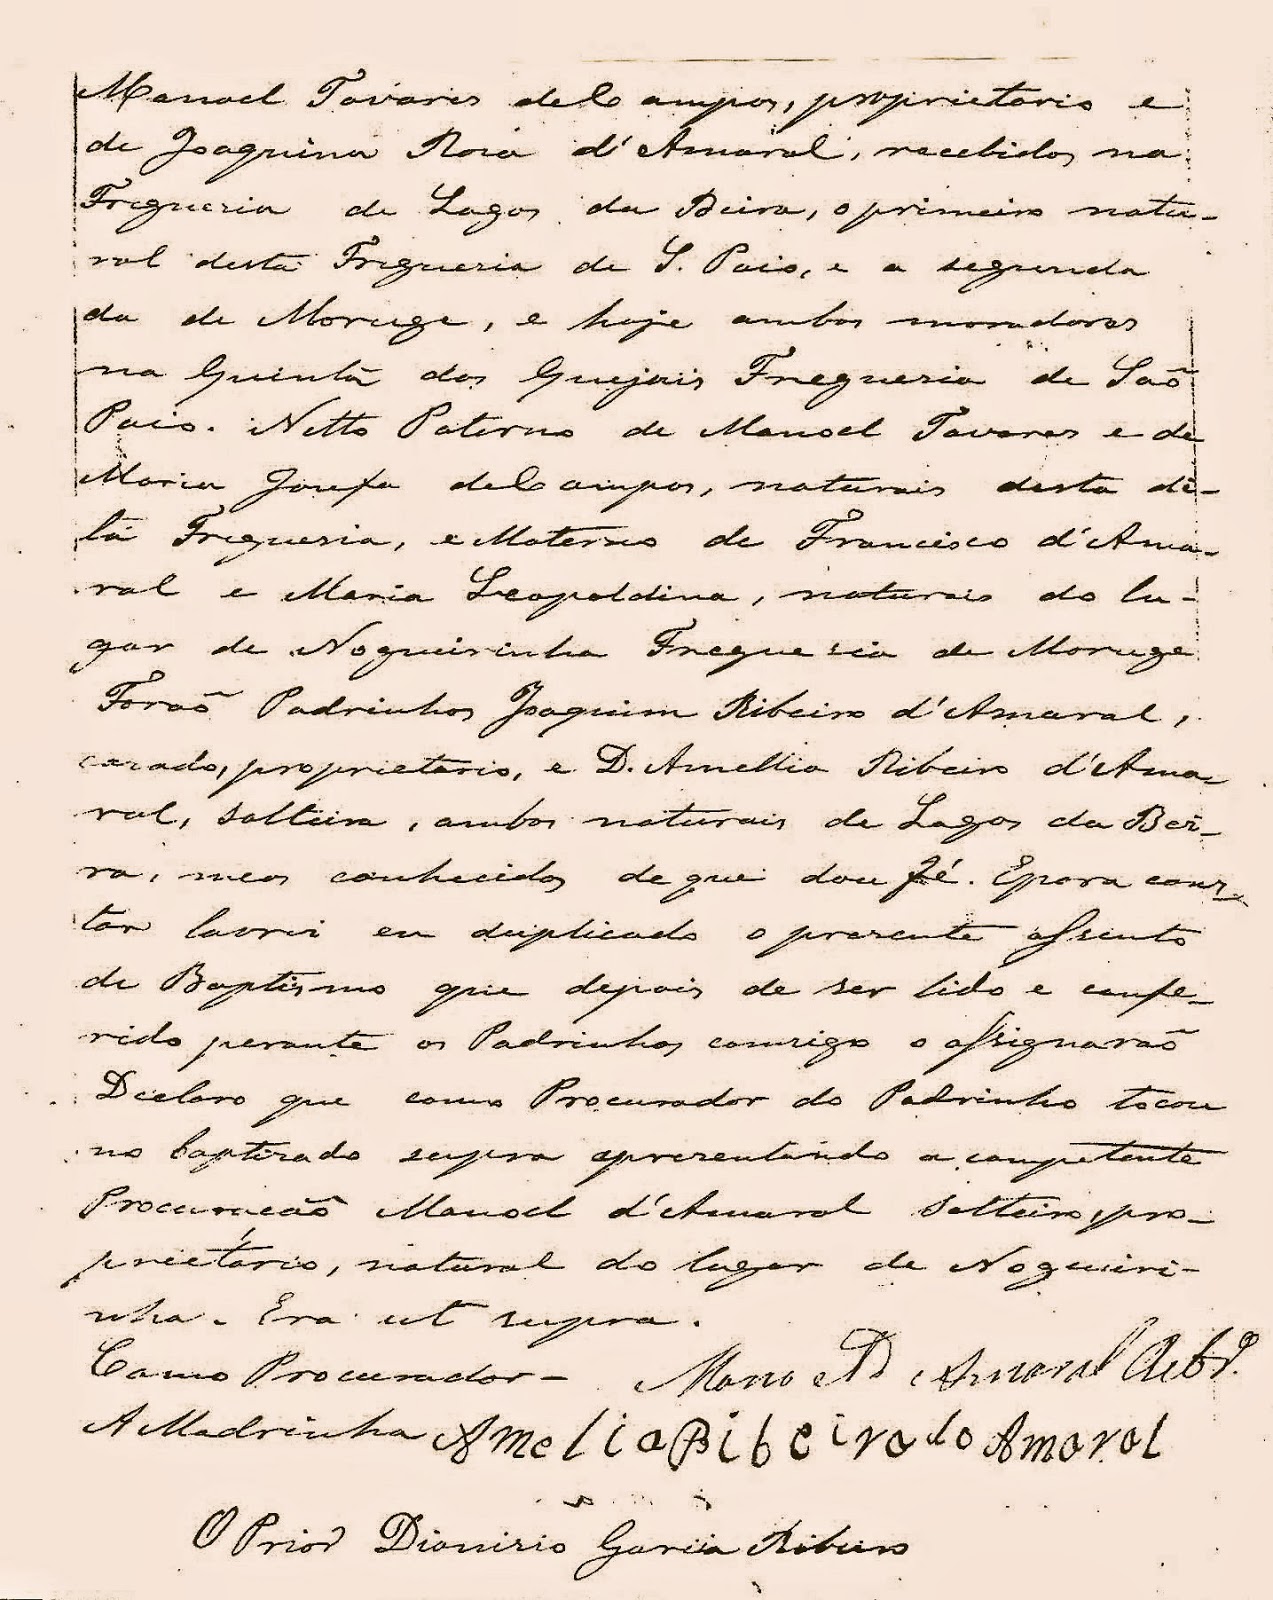 Manoel Tavares de Campos, proprietario e
de Joaquina Roza d'Amaral, recebidos na
Freguesia de Lagos da Beira, o primeiro natu-
ral desta Freguesia de S. Paio, e a segunda
da de Moruge, e hoje ambos moradores
na Quinta dos Guejais Freguesia de Saõ
Paio. Netto Paterno de Manoel Tavares e de
Maria Josefa de Campos, naturais desta di-
ta Freguesia, e Materno de Francisco d'Ama-
ral e Maria Leopoldina, naturais do lu-
gar de Nogueirinha Freguesia de Moruge
Foraõ Padrinhos Joaquim Ribeiro d'Amaral,
casado, proprietario, e D. Amellia Ribeiro d'Ama-
ral, solteira, ambos naturais de Lagos da Bei-
ra, meos conhecidos de que dou fé. E para cons-
tar lavrei em duplicado o presente assento
de Baptismo que depois de ser lido e confe-
rido perante os Padrinhos comigo o assignaraõ
Declaro que como Procurador do Padrinho tocou
no baptizado supra apresentando a competente
Procuracaõ Manoel d'Amaral solteiro, pro-
prietário, natural do lugar de Nogueiri-
nha. Era ut supra.
Como Procurador - Manoel D Amaral
A Madrinha Amelia Ribeira do Amaral
O Prior Dionizio Garcia Ribeiro